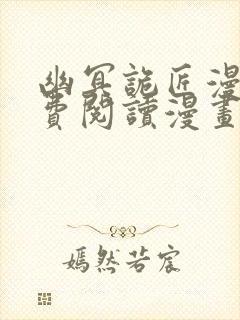 幽冥詭匠漫
費閱讀漫畫
嫣然若宸